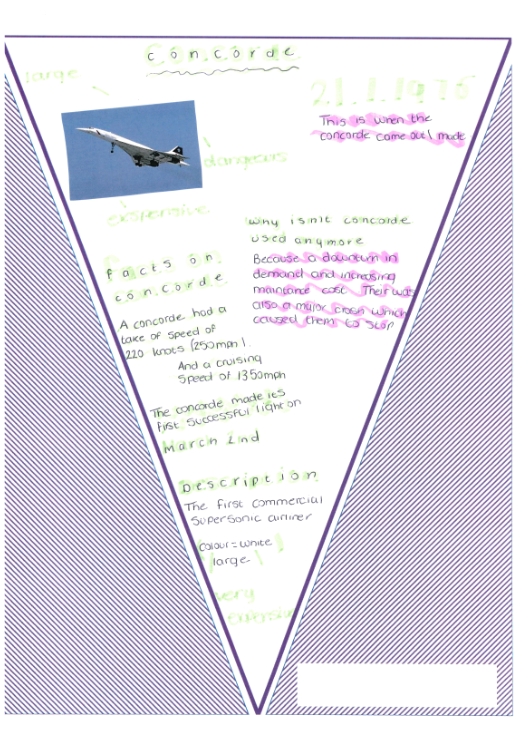 concorde
large
21.1.1976
This is when the
concorde came out/made
dangeurs
expensive
why isn't concorde
used anymore
Because a downturn in
demand and increasing
maintance cost. Their was
also a major crash which
caused them to stop
Facts on
concorde
A concorde had a
take of speed of
220 knots (250mph).
And a cruising
speed of 1350mph
The concorde made its
first successful flight on
March 2nd
Description
The first commercial
supersonic airliner
colour = white
large
very
expensive